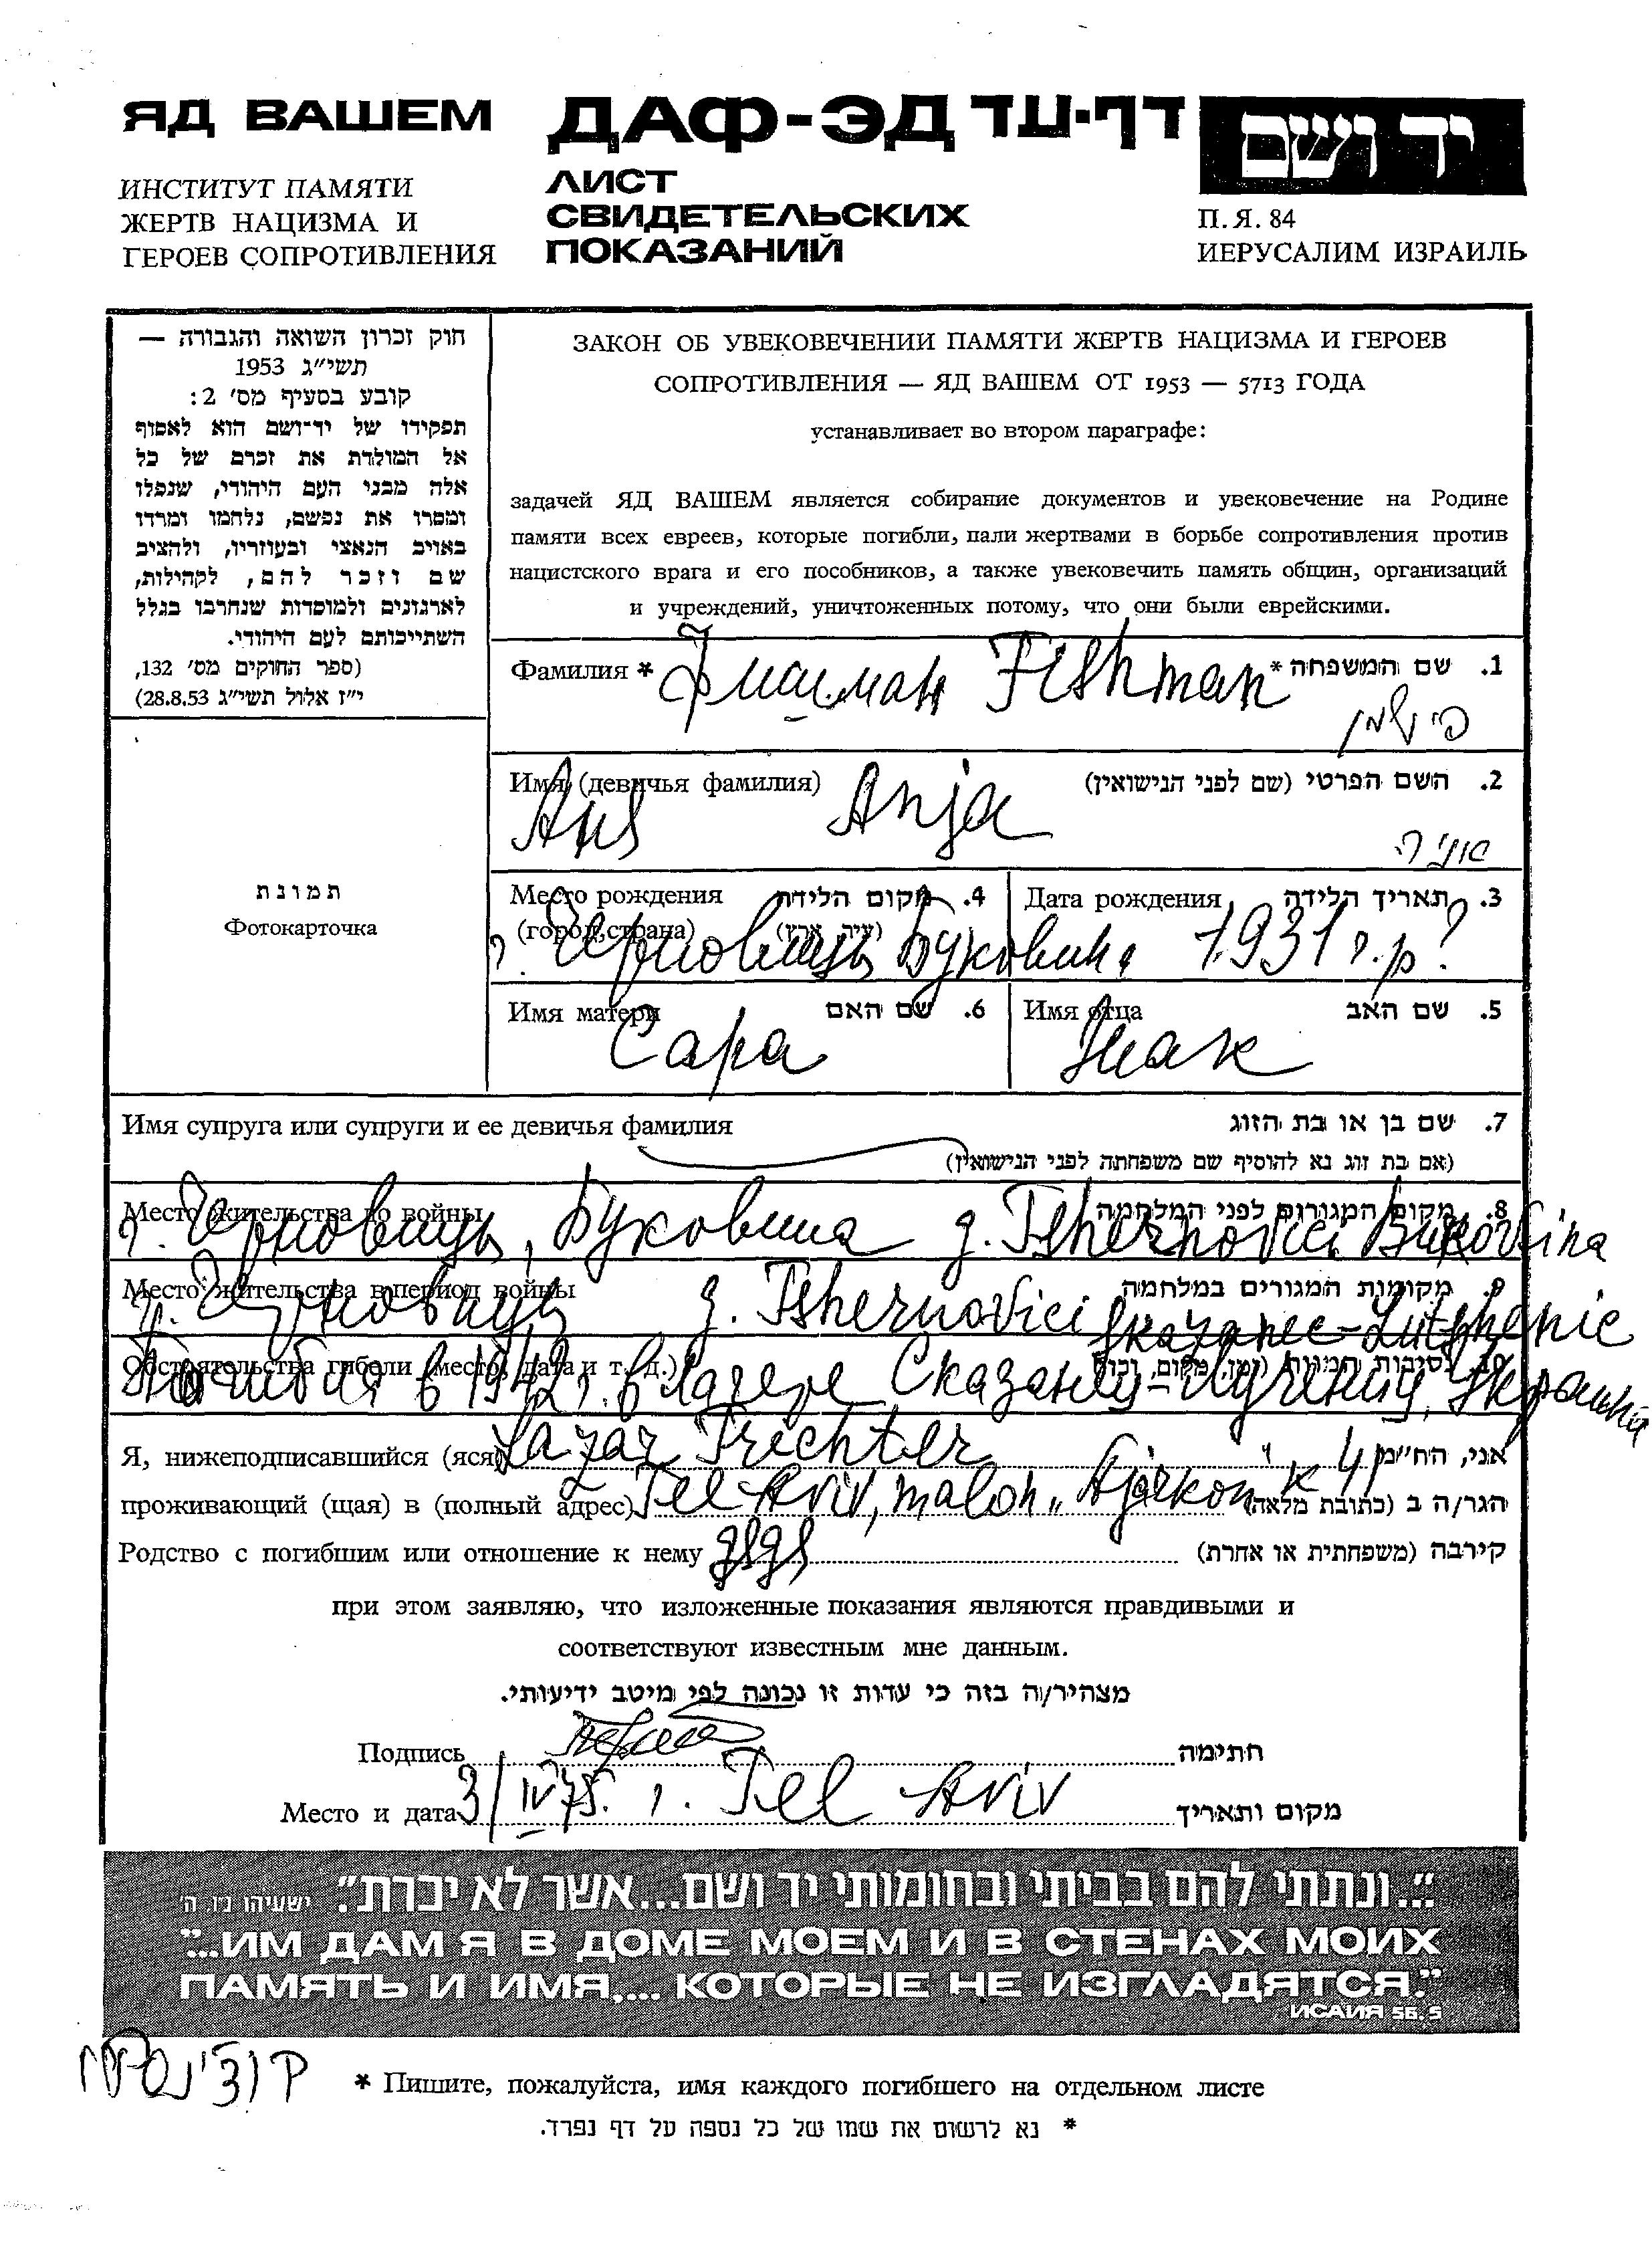 ЯД ВАШЕМ
ИНСТИТУТ ПАМЯТИ
ЖЕРТВ НАЦИЗМА И
ГЕРОЕВ СОПРОТИВЛЕНИЯ
ДАФ-ЭД דף-עד
ЛИСТ
СВИДЕТЕЛЬСКИХ
ПОКАЗАНИЙ
יד ושם
П.Я. 84
ИЕРУСАЛИМ ИЗРАИЛЬ
חוק זכרון השואה והגבורה —
תשי״ג 1953
קובע בסעיף מס׳ 2:
תפקידו של יד־ושם הוא לאסוף
אל המולדת את זכרם של כל
אלה מבני העם היהודי, שנפלו
ומסרו את נפשם, נלחמו ומרדו
באויב הנאצי ובעוזריו, ולהציב
שם וזכר להם, לקהילות,
לארגונים ולמוסדות שנחרבו בגלל
השתייכותם לעם היהודי.
(ספר החוקים מס׳ 132,
י״ז אלול תשי״ג 28.8.53)
ЗАКОН ОБ УВЕКОВЕЧЕНИИ ПАМЯТИ ЖЕРТВ НАЦИЗМА И ГЕРОЕВ
СОПРОТИВЛЕНИЯ — ЯД ВАШЕМ ОТ 1953 — 5713 ГОДА
устанавливает во втором параграфе:
задачей ЯД ВАШЕМ является собирание документов и увековечение на Родине
памяти всех евреев, которые погибли, пали жертвами в борьбе сопротивления против
нацистского врага и его пособников, а также увековечить память общин, организаций
и учреждений, уничтоженных потому, что они были еврейскими.
Фамилия * Фишман Fishman 1. שם המשפחה *
פישמן
Имя (девичья фамилия) 2. השם הפרטי (שם לפני הנישואין)
Аня Anja
אניה
תמונת
Фотокарточка
Место рождения 4. מקום הלידה
(город, страна) (עיר, ארץ)
г. Черновицы Буковина
Дата рождения 3. תאריך הלידה
1931 г.р?
Имя матери 6. שם האם
Сара
Имя отца 5. שם האב
Исак
Имя супруга или супруги и ее девичья фамилия 7. שם בן או בת הזוג
(אם בת זוג נא להוסיף שם משפחתה לפני הנישואין)
Место жительства до войны 8. מקום המגורים לפני המלחמה
г. Черновицы, Буковина g. Tshernovici Bukovina
Место жительства в период войны 9. מקומות המגורים במלחמה
г. Черновицы g. Tshernovici
Обстоятельства гибели (место, дата и т. д.) 10. נסיבות המוות (זמן, מקום, וכו׳)
Погибла в 1942 г. в лагере Украина
Я, нижеподписавшийся (яся) Lazar Trechter אני, הח״מ
проживающий (щая) в (полный адрес) Tel Aviv, malon "Ajarkon" הגר/ה ב (כתובת מלאה)
Родство с погибшим или отношение к нему дядя קירבה (משפחתית או אחרת)
при этом заявляю, что изложенные показания являются правдивыми и
соответствуют известным мне данным.
מצהיר/ה בזה כי עדות זו נכונה לפי מיטב ידיעותי.
Подпись חתימה
Место и дата 3/IV 75. г. Tel Aviv מקום ותאריך
״...ונתתי להם בביתי ובחומותי יד ושם...אשר לא יכרת״. ישעיהו נ״ו, ה׳
"...ИМ ДАМ Я В ДОМЕ МОЕМ И В СТЕНАХ МОИХ
ПАМЯТЬ И ИМЯ.... КОТОРЫЕ НЕ ИЗГЛАДЯТСЯ."
ИСАИЯ 56.5
* Пишите, пожалуйста, имя каждого погибшего на отдельном листе
* נא לרשום את שמו של כל נספה על דף נפרד.